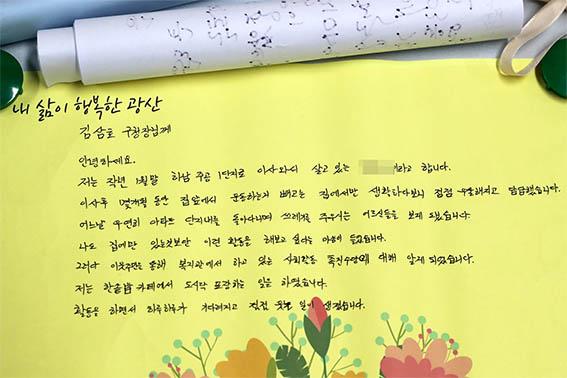 내 삶이 행복한 광산
김삼호 구청장님께
안녕하세요.
저는 작년 1월말 하남 주공 1단지로 이사와서 살고 있는 이라고 합니다.
이사후 몇개월 동안 집앞에서 운동하는거 빼고는 집에서만 생활하다보니 점점 우울해지고 답답했습니다.
어느날 우연히 아파트 단지내를 돌아다니며 쓰레기를 주우시는 어르신들을 보게 되었습니다.
나도 집에만 있는것보단 이런 활동을 해보고 싶다는 마음이 들었습니다.
그러다 이웃주민을 통해 복지관에서 하고 있는 사회활동 촉진수당에 대해 알게 되었습니다.
저는 한글 카페에서 도시락 포장하는 일을 하였습니다.
활동을 하면서 하루하루가 기다려지고 점점 웃는 일이 생겼습니다.